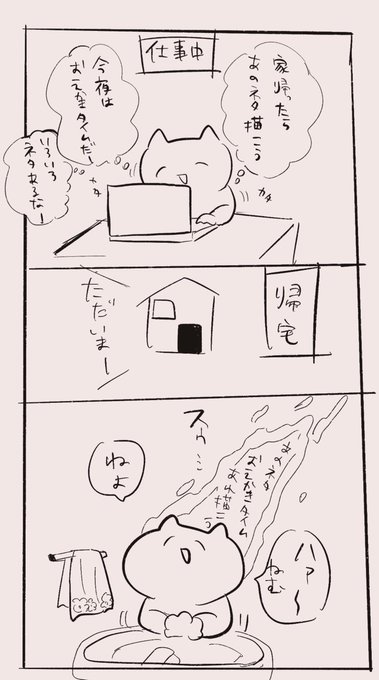 仕事中
家帰ったら
あのネタ描こう
今夜は
おえかきタイムだー
いろいろ
ネタあるなー
カタ
カタ
帰宅
ただいまー
あのネタ
おえかきタイム
あれ描こう
スゥ…
ハァ〜
ねむ
ねよ